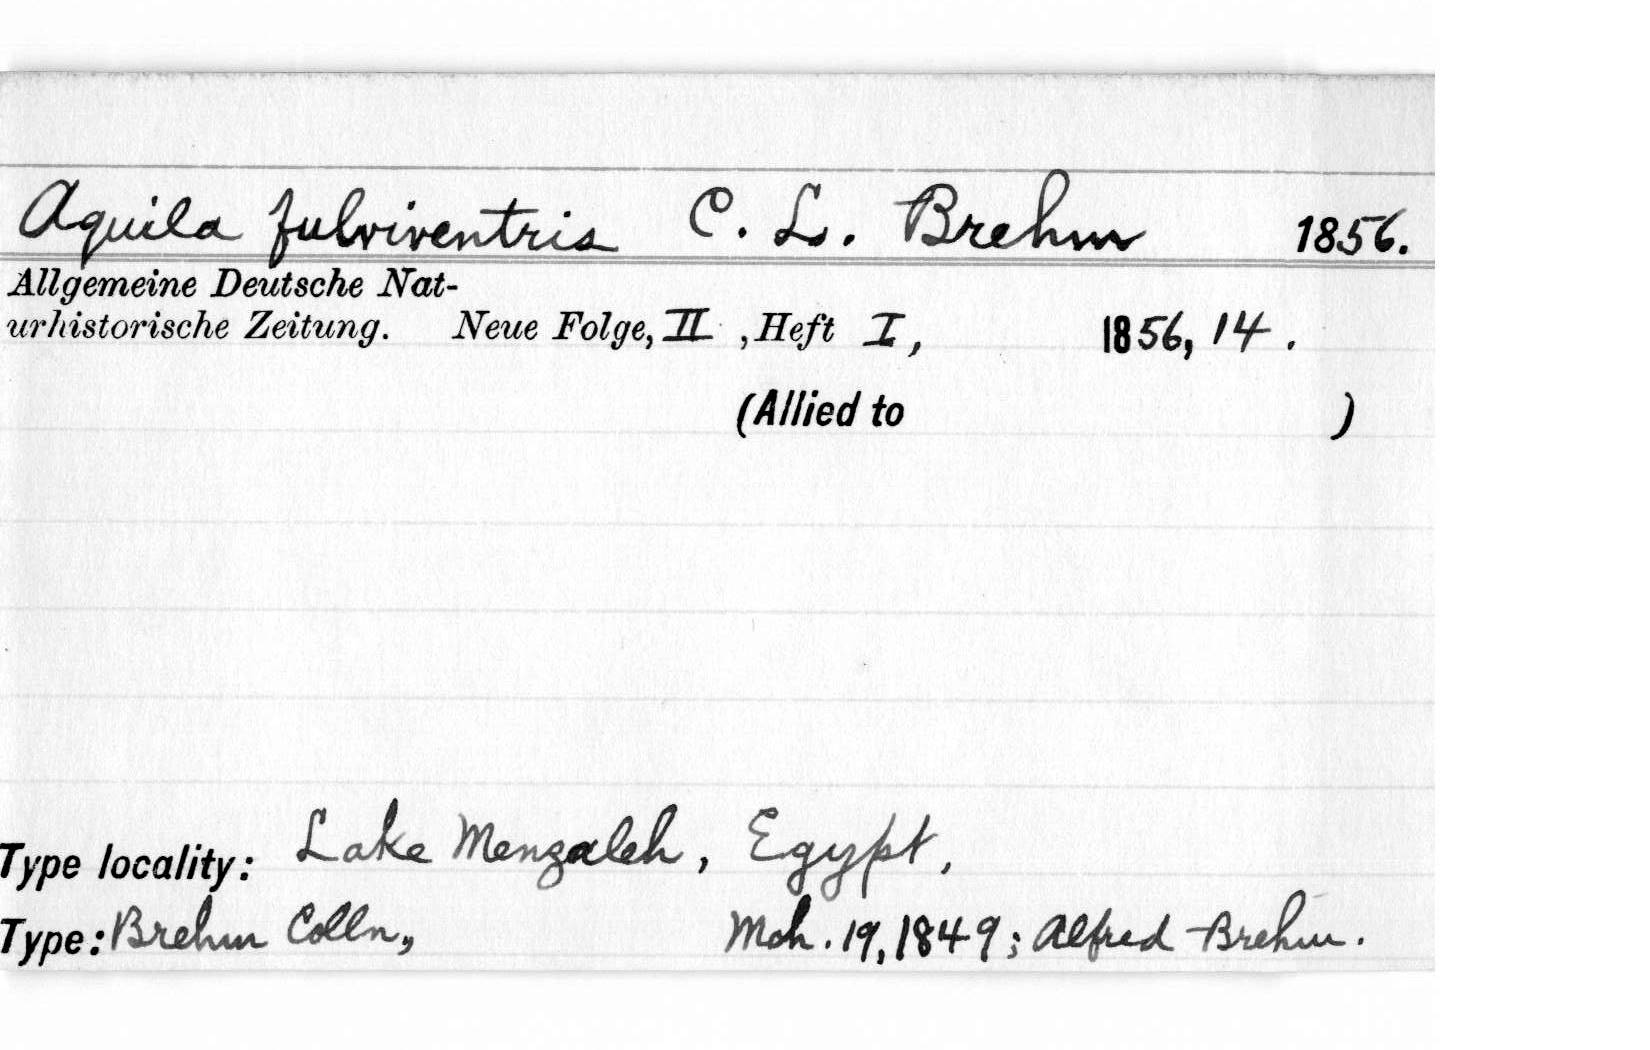 Aquila fulviventris C. L. Brehm 1856.
Allgemeine Deutsche Nat-
urhistorische Zeitung. Neue Folge, II , Heft I, 1856, 14 .
(Allied to )
Type locality: Lake Menzaleh, Egypt,
Type: Brehm Colln, Mch. 19, 1849; Alfred Brehm.